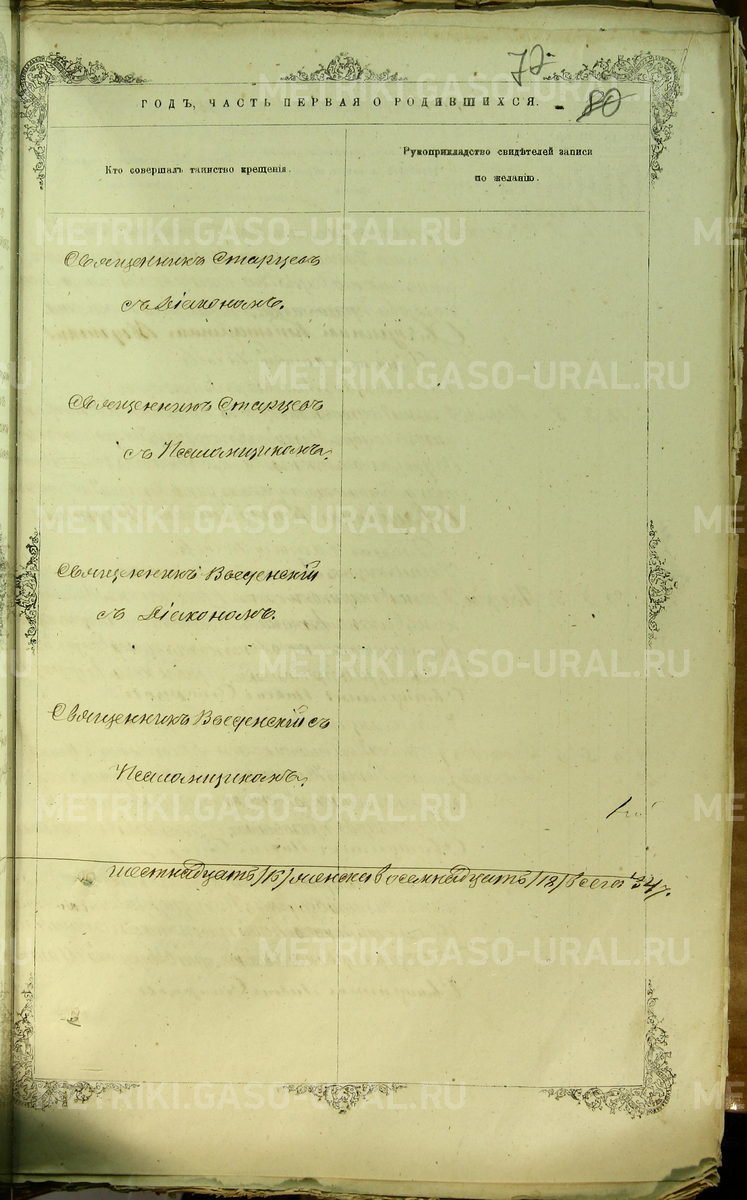 72
80
ГОДЪ, ЧАСТЬ ПЕРВАЯ О РОДИВШИХСЯ.
Кто совершалъ таинство крещенія.
Рукоприкладство свидѣтелей записи
по желанію.
METRIKI.GASO-URAL.RU
Священникъ Старцевъ
съ Діакономъ.
Священникъ Старцевъ
съ Псаломщикомъ.
Священникъ Введенскій
съ Діакономъ.
Священникъ Введенскій съ
Псаломщикомъ.
шестнадцать /16/ женска восемнадцать /18/ всего 34